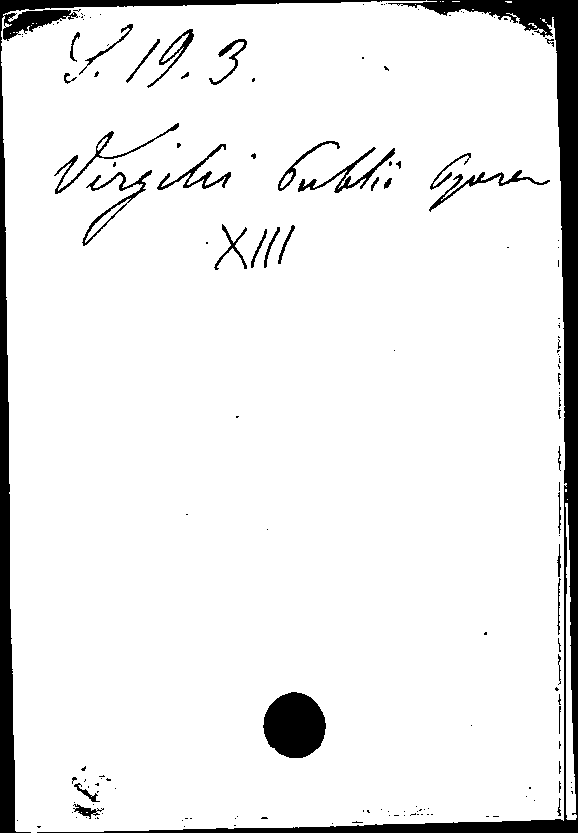 S. 19. 3.
Virgilii Publii Opera
XIII